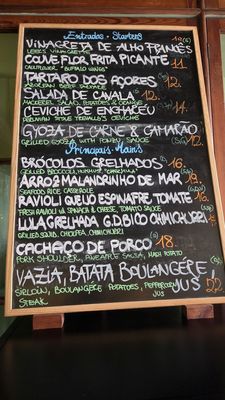 Entradas - Starters
VINAGRETA DE ALHO FRANCÊS
LEEKS VINAIGRETTE
COUVE FLOR FRITA PICANTE 11.
CAULIFLOWER "BUFFALO WINGS"
TARTARO DOS AÇORES 12.
AZOREAN BEEF TARTARE
SALADA DE CAVALA 12.
MACKEREL SALAD, POTATOES & ORANGE
CEVICHE DE ENCHARÉU 14.
CEVICHE
GYOZA DE CARNE & CAMARÃO
GRILLED GYOZA WITH PONZU SAUCE 12.
Principais - Mains
BRÓCOLOS GRELHADOS 16.
GRILLED BROCCOLI, HUMMUS
ARROZ MALANDRINHO DE MAR
SEAFOOD RICE CASSEROLE
RAVIOLI QUEIJO ESPINAFRE TOMATE 16.
FRESH RAVIOLI W/ SPINACH & CHEESE, TOMATO SAUCE
LULA GRELHADA, G.D.BICO CHIMICHURRI
GRILLED SQUID, CHICKPEA, CHIMICHURRI
CACHAÇO DE PORCO 18.
PORK SHOULDER, PINEAPPLE SALSA, MASH POTATO
VAZIA, BATATA BOULANGÉRE, JUS 22.
SIRLOIN, BOULANGÉRE POTATOES, PEPPERCORN JUS
STEAK